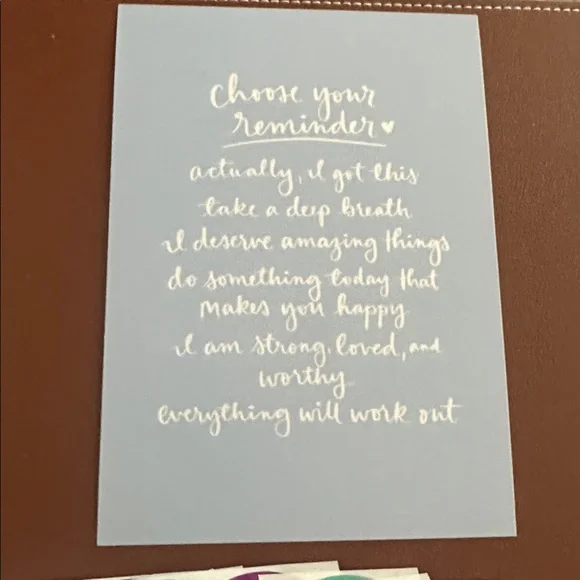 choose your
reminder ♥
actually, I got this
take a deep breath
I deserve amazing things
do something today that
makes you happy
I am strong, loved, and
worthy
everything will work out